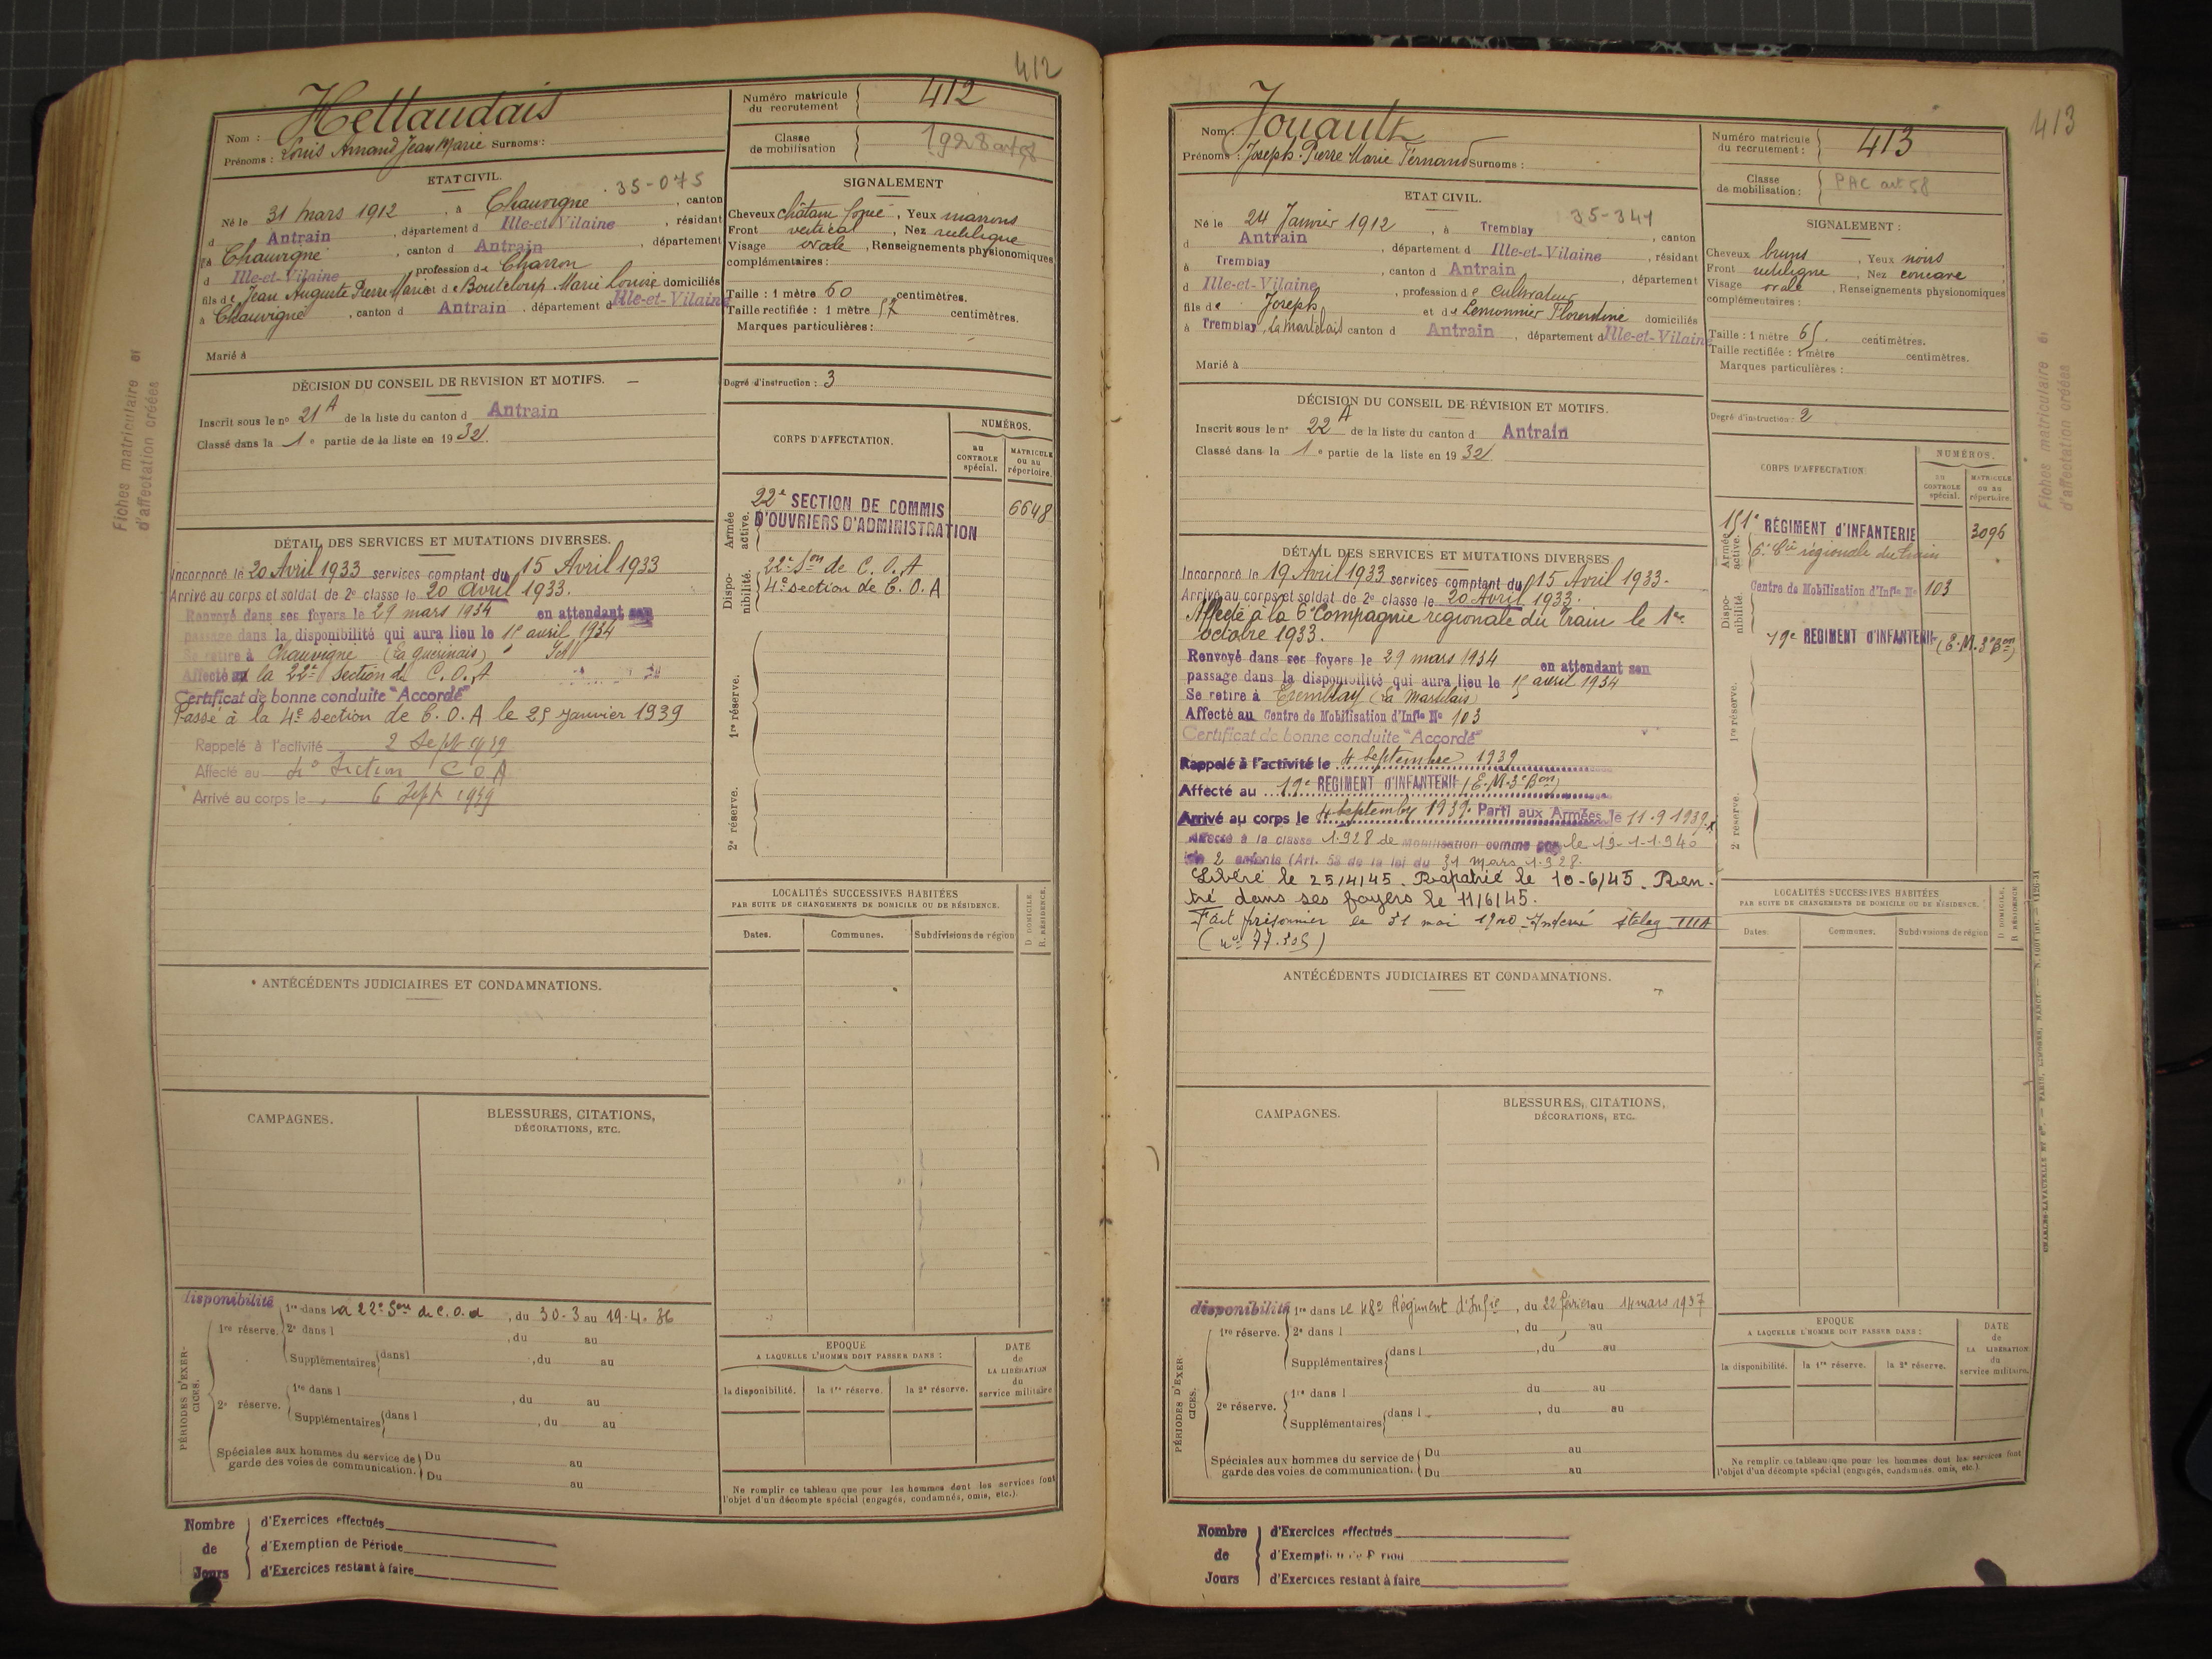 412
Hettaudais
Nom :
Prénoms : Louis Amand Jean Marie Surnoms :
Numéro matricule du recrutement 412
Classe de mobilisation 1928 art 58
ETAT CIVIL.
35-075
Né le 31 mars 1912, à Chauvigné, canton
d Antrain, département d Ille-et-Vilaine, résidant
à Chauvigné, canton d Antrain, département
d Ille-et-Vilaine, profession de Charron
fils de Jean Auguste Pierre Marie et de Bouteloup Marie Louise domiciliés
à Chauvigné, canton d Antrain, département d Ille-et-Vilaine
Marié à
SIGNALEMENT
Cheveux châtain foncé, Yeux marrons
Front vertical, Nez rectiligne
Visage ovale, Renseignements physionomiques
complémentaires :
Taille : 1 mètre 60 centimètres.
Taille rectifiée : 1 mètre 57 centimètres.
Marques particulières :
Degré d'instruction : 3
DÉCISION DU CONSEIL DE REVISION ET MOTIFS.
Inscrit sous le nº 21 A de la liste du canton d Antrain
Classé dans la 1e partie de la liste en 1932.
CORPS D'AFFECTATION.
NUMÉROS.
au CONTROLE spécial.
MATRICULE ou au répertoire.
Armée active.
22e SECTION DE COMMIS
D'OUVRIERS D'ADMINISTRATION
6648
Disponibilité.
22e Son de C. O. A
4e section de C. O. A
1re réserve.
2e réserve.
DÉTAIL DES SERVICES ET MUTATIONS DIVERSES.
Incorporé le 20 Avril 1933 services comptant du 15 Avril 1933
Arrivé au corps et soldat de 2e classe le 20 Avril 1933.
Renvoyé dans ses foyers le 29 mars 1934 en attendant son
passage dans la disponibilité qui aura lieu le 15 avril 1934
Se retire à Chauvigné
Affecté à la 22e Section de C. O. A
Certificat de bonne conduite "Accordé"
Passé à la 4e section de C. O. A le 25 Janvier 1939
Rappelé à l'activité 2 Sept 1939
Affecté au 4e Section C O A
Arrivé au corps le 6 Sept 1939
LOCALITÉS SUCCESSIVES HABITÉES
PAR SUITE DE CHANGEMENTS DE DOMICILE OU DE RÉSIDENCE.
D. DOMICILE.
R. RÉSIDENCE.
Dates.
Communes.
Subdivisions de région
ANTÉCÉDENTS JUDICIAIRES ET CONDAMNATIONS.
CAMPAGNES.
BLESSURES, CITATIONS,
DÉCORATIONS, ETC.
PÉRIODES D'EXERCICES.
disponibilité
1re dans la 22e Son de C. O. A, du 30-3 au 19.4.36
1re réserve. 2e dans l , du au
Supplémentaires dans l , du au
2e réserve. 1re dans l , du au
Supplémentaires dans l , du au
Spéciales aux hommes du service de garde des voies de communication. Du au
Du au
EPOQUE
A LAQUELLE L'HOMME DOIT PASSER DANS :
la disponibilité.
la 1re réserve.
la 2e réserve.
DATE de LA LIBÉRATION du service militaire
Ne remplir ce tableau que pour les hommes dont les services font
l'objet d'un décompte spécial (engagés, condamnés, omis, etc.).
Nombre de Jours
d'Exercices effectués
d'Exemption de Période
d'Exercices restant à faire
Fiches matriculaire et
d'affectation créées
413
Jouault
Nom :
Prénoms : Joseph Pierre Marie Fernand Surnoms :
Numéro matricule du recrutement : 413
Classe de mobilisation : PAC art 58
ETAT CIVIL.
35-341
Né le 24 Janvier 1912, à Tremblay, canton
d Antrain, département d Ille-et-Vilaine, résidant
à Tremblay, canton d Antrain, département
d Ille-et-Vilaine, profession de cultivateur
fils de Joseph et de Lemonnier Florentine domiciliés
à Tremblay, La Martelais canton d Antrain, département d Ille-et-Vilaine
Marié à
SIGNALEMENT :
Cheveux bruns, Yeux noirs
Front rectiligne, Nez concave
Visage ovale, Renseignements physionomiques
complémentaires :
Taille : 1 mètre 65. centimètres.
Taille rectifiée : 1 mètre centimètres.
Marques particulières :
Degré d'instruction : 2
DÉCISION DU CONSEIL DE RÉVISION ET MOTIFS.
Inscrit sous le nº 22 A de la liste du canton d Antrain
Classé dans la 1e partie de la liste en 1932.
CORPS D'AFFECTATION
NUMÉROS.
au CONTROLE spécial.
MATRICULE ou au répertoire.
Armée active.
151e RÉGIMENT D'INFANTERIE 3096
6e Cie régionale du train
Disponibilité.
Centre de Mobilisation d'Infie Nº 103
19e REGIMENT D'INFANTERIE (E.M. 3e Bon)
1re réserve.
2e réserve.
DÉTAIL DES SERVICES ET MUTATIONS DIVERSES
Incorporé le 19 Avril 1933 services comptant du 15 Avril 1933.
Arrivé au corps et soldat de 2e classe le 20 Avril 1933.
Affecté à la 6e Compagnie régionale du Train le 1er
octobre 1933.
Renvoyé dans ses foyers le 29 mars 1934 en attendant son
passage dans la disponibilité qui aura lieu le 15 avril 1934
Se retire à Tremblay (La Martelais)
Affecté au Centre de Mobilisation d'Infie Nº 103
Certificat de bonne conduite "Accordé"
Rappelé à l'activité le 4 Septembre 1939
Affecté au 19e REGIMENT D'INFANTERIE (E.M. 3e Bon)
Arrivé au corps le 4 septembre 1939. Parti aux Armées le 11.9.1939.
Affecté à la classe 1928 de mobilisation comme père le 12-1-1940
de 2 enfants (Art. 58 de la loi du 31 mars 1928.
Libéré le 25/4/45. Rapatrié le 10-6/45. Ren-
tré dans ses foyers le 11/6/45.
Fait prisonnier le 31 mai 1940 Interné stalag IIIA
LOCALITÉS SUCCESSIVES HABITÉES
PAR SUITE DE CHANGEMENTS DE DOMICILE OU DE RÉSIDENCE.
D. DOMICILE.
R. RÉSIDENCE
Dates
Communes.
Subdivisions de région
ANTÉCÉDENTS JUDICIAIRES ET CONDAMNATIONS.
CAMPAGNES.
BLESSURES, CITATIONS,
DÉCORATIONS, ETC.
PÉRIODES D'EXERCICES.
disponibilité
1re dans le 48e Régiment d'Infie, du 22 février au 14 mars 1937
1re réserve. 2e dans l , du au
Supplémentaires dans l , du au
2e réserve. 1re dans l du au
Supplémentaires dans l , du au
Spéciales aux hommes du service de garde des voies de communication. Du au
Du au
EPOQUE
A LAQUELLE L'HOMME DOIT PASSER DANS :
la disponibilité.
la 1re réserve.
la 2e réserve.
DATE de LA LIBÉRATION du service militaire.
Ne remplir ce tableau que pour les hommes dont les services font
l'objet d'un décompte spécial (engagés, condamnés, omis, etc.).
Nombre de Jours
d'Exercices effectués
d'Exercices restant à faire
Fiches matriculaire et
d'affectation créées